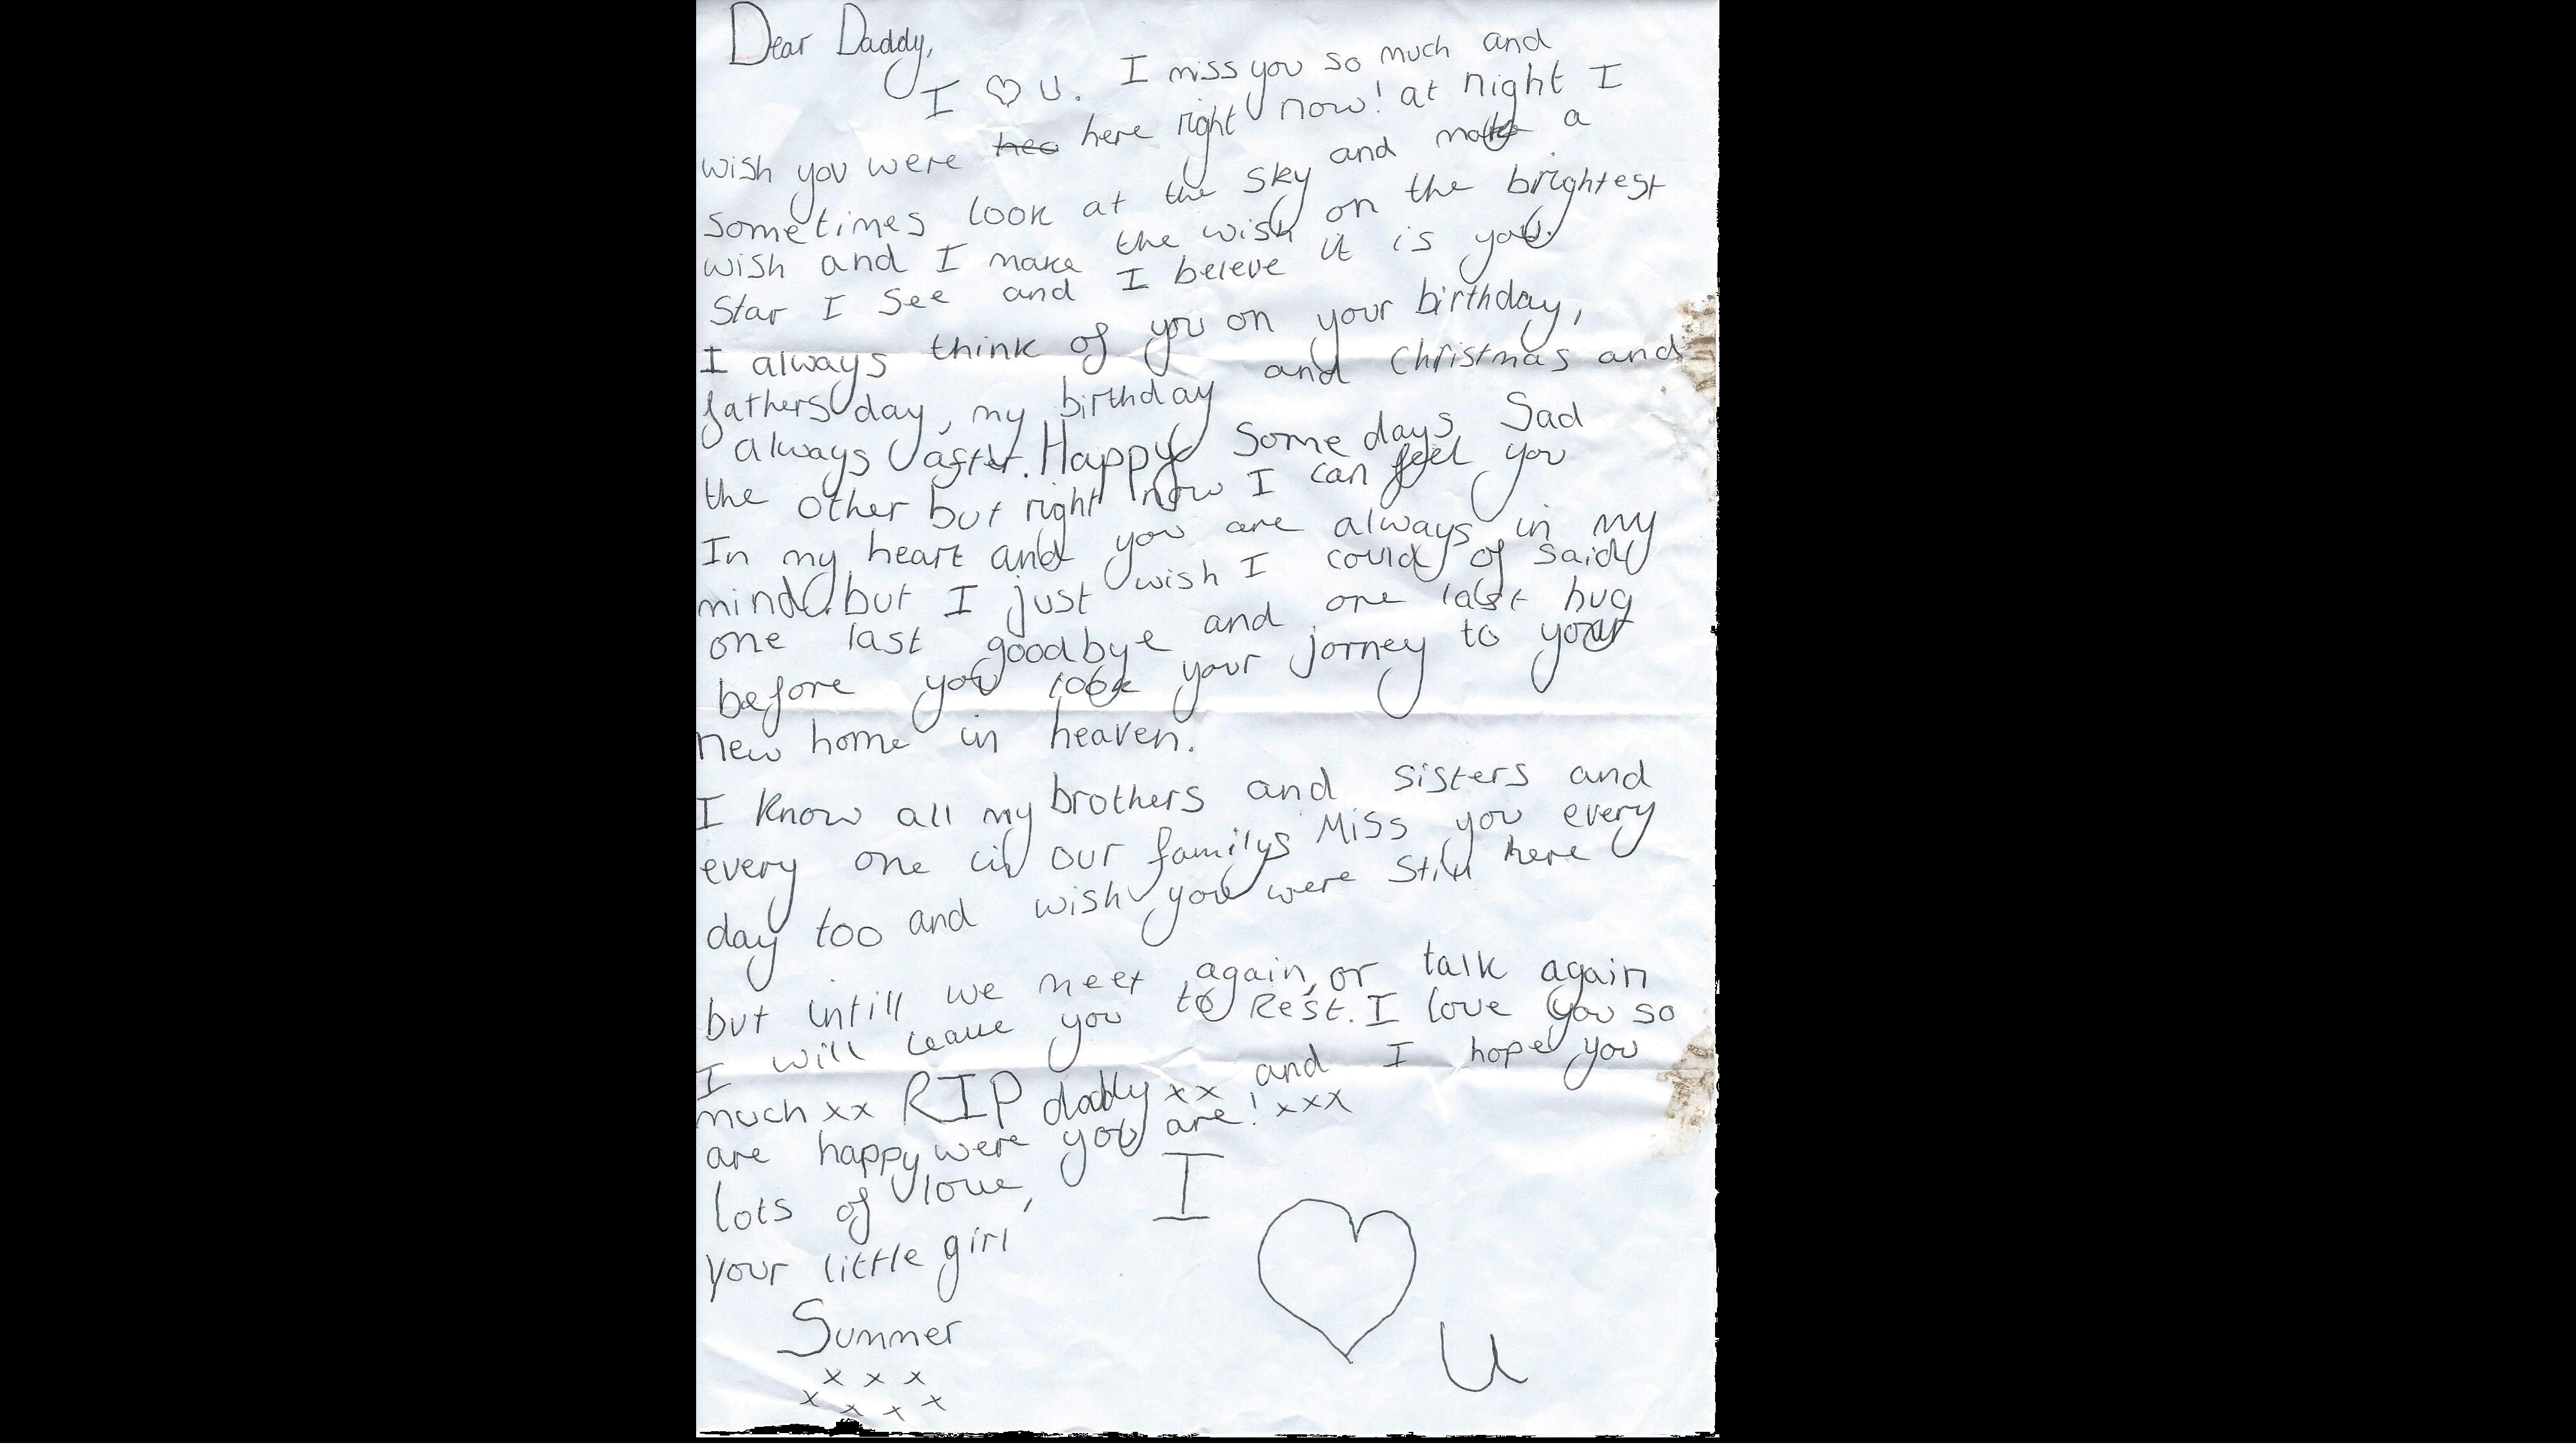 Dear Daddy,
I ♡ U. I miss you so much and
wish you were hec here right now! at night I
sometimes look at the sky and make a
wish and I make the wish on the brightest
star I see and I beleve it is you.
I always think of you on your birthday,
fathers day, my birthday and Christmas and
always after. Happy some days Sad
the other but right now I can feel you
In my heart and you are always in my
mind. but I just wish I could of said
one last goodbye and one last hug
before you took your jorney to your
new home in heaven.
I know all my brothers and sisters and
every one in our familys Miss you every
day too and wish you were Still here
but intill we meet again, or talk again
I will leave you to Rest. I love you so
much xx RIP daddy xx and I hope you
are happy were you are! xxx
lots of love,
your little girl
Summer
x x x
x x x x
I
♡
U